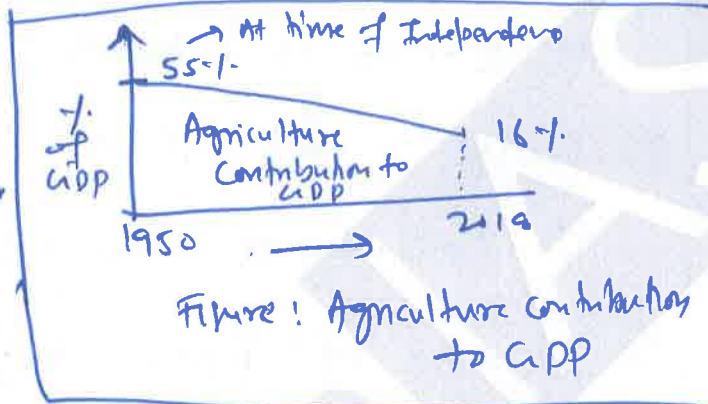 → At time of Independence
55%
%
of
GDP
Agriculture
Contribution to
GDP
16%
1950 → 2018
Figure: Agriculture contribution
to GDP